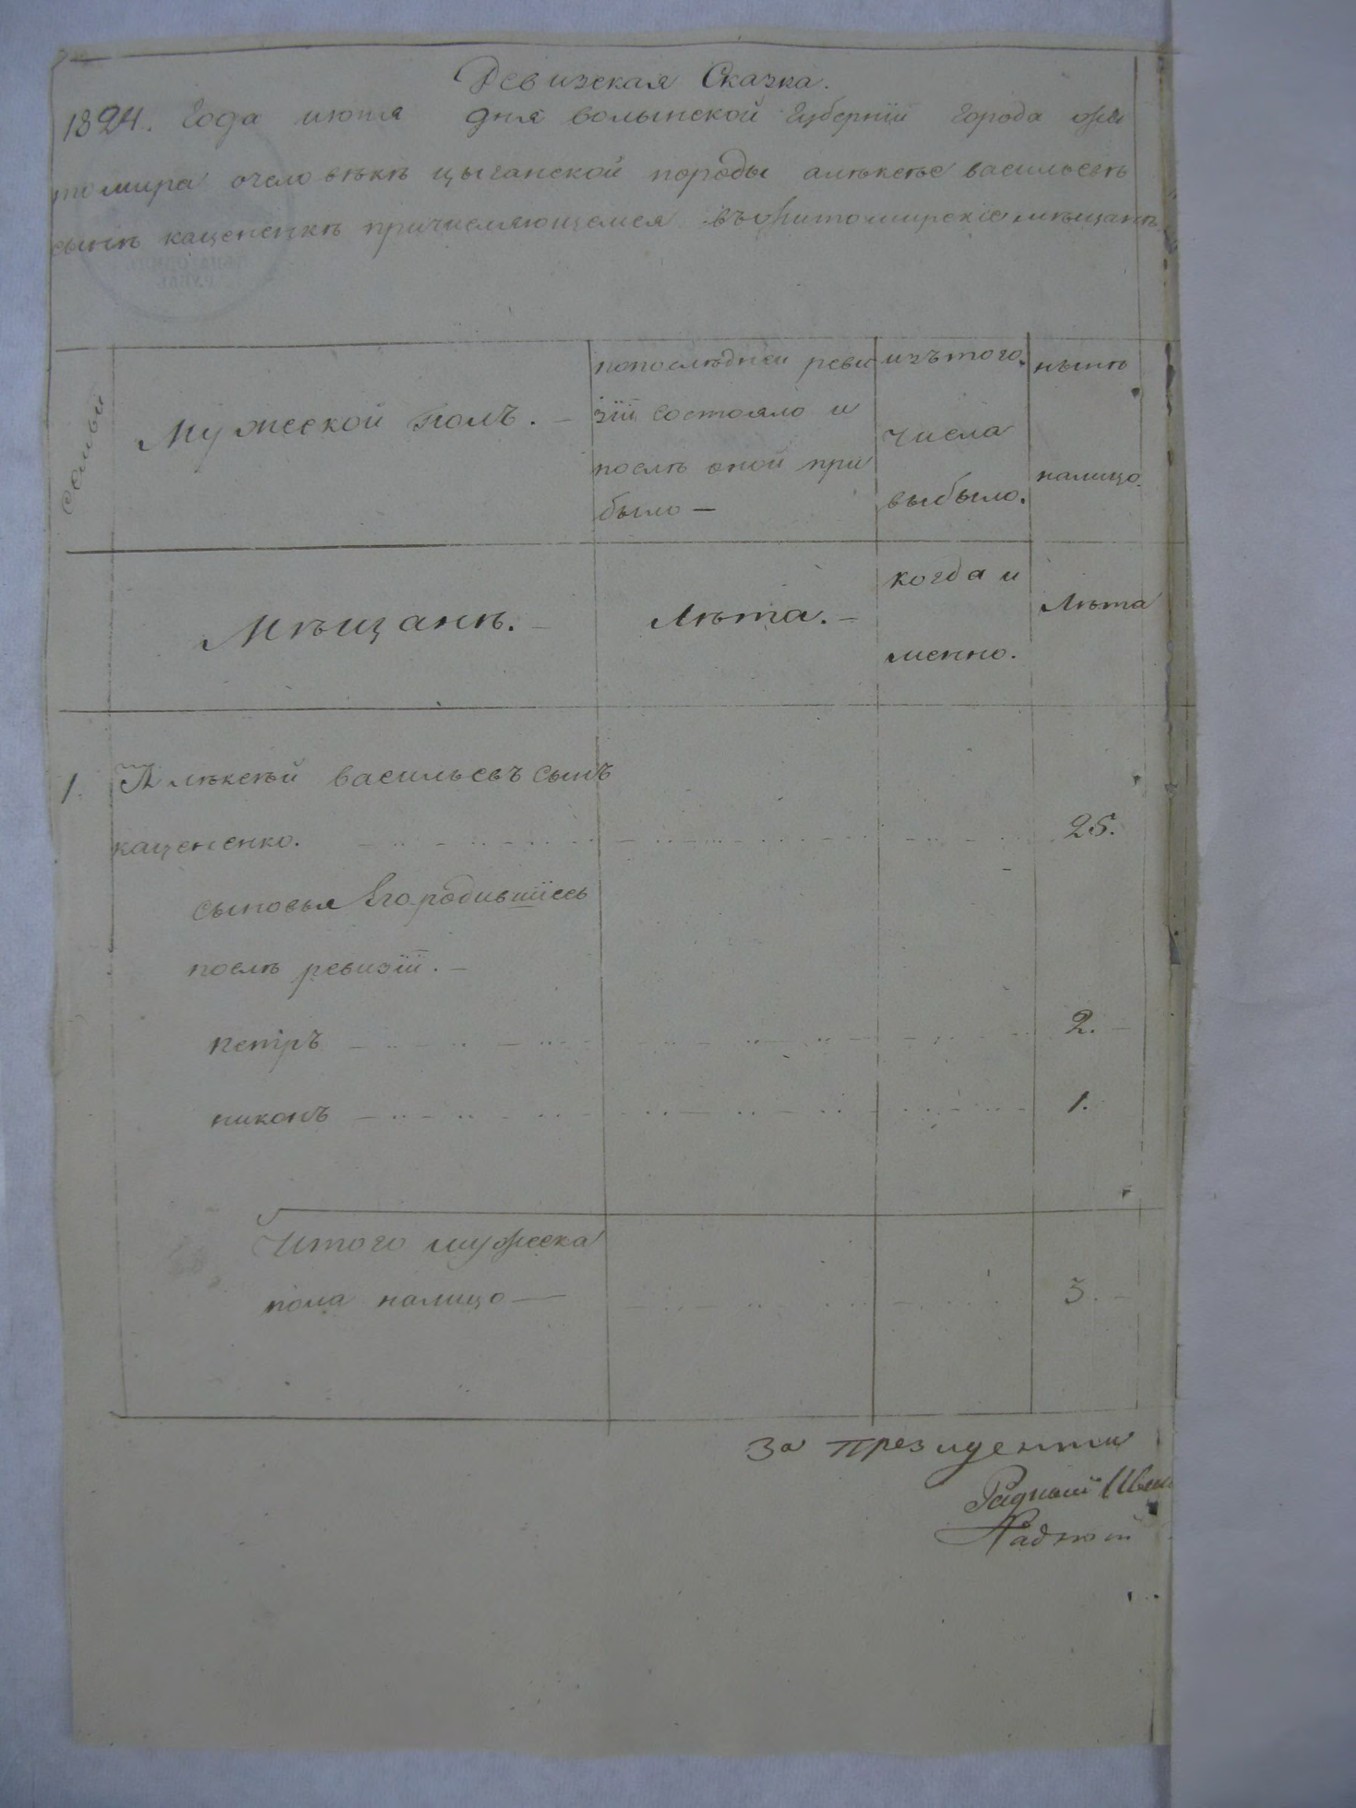 Ревизская Сказка.
1824. Года июня дня волынской Губернїи города жи
томира очеловѣкѣ цыганской породы алѣксѣе васильевѣ
сынѣ каценѣнкѣ причисляющемся въжитомирскїе мѣщанѣ
семьи
Мужеской полъ. —
попослѣднеи реви
зїи состояло и
послѣ оной при
было —
изътого
числа
выбыло.
нынѣ
налицо.
Мѣщанѣ. —
Лѣта. —
когда и
менно.
Лѣта
1. Алѣксѣй васильевъ сынъ
кацененко. 25.
сыновья Его родившїесь
послѣ ревизїи. —
петръ 2. —
никонъ 1.
Итого мужеска
пола налицо — 3. —
За президента
Ратман